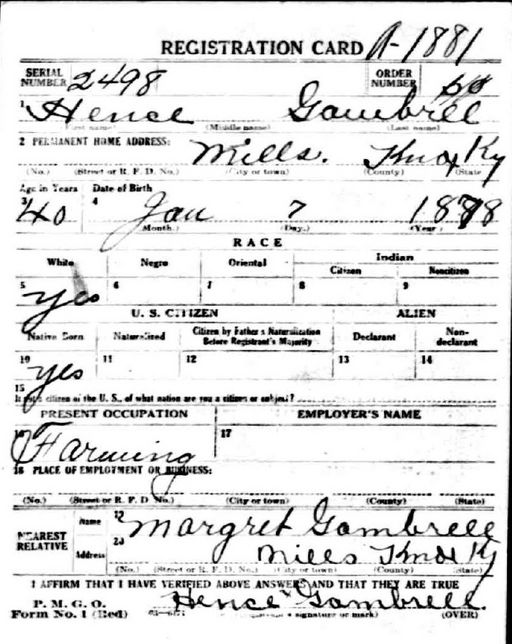 REGISTRATION CARD A-1881
SERIAL NUMBER 2498 ORDER NUMBER
1 Hence Gambrell
(First name) (Middle name) (Last name)
2 PERMANENT HOME ADDRESS: Mills. Knox Ky
(No.) (Street or R. F. D. No.) (City or town) (County) (State)
Age in Years Date of Birth
3 40 4 Jan 7 1878
(Month.) (Day.) (Year)
RACE
White Negro Oriental Indian
Citizen Noncitizen
5 yes 6 7 8 9
U. S. CITIZEN ALIEN
Native Born Naturalized Citizen by Father's Naturalization Before Registrant's Majority Declarant Non-declarant
10 yes 11 12 13 14
15
If not a citizen of the U. S., of what nation are you a citizen or subject?
PRESENT OCCUPATION EMPLOYER'S NAME
16 Farming 17
18 PLACE OF EMPLOYMENT OR BUSINESS:
(No.) (Street or R. F. D. No.) (City or town) (County) (State)
NEAREST RELATIVE Name 19 Margret Gambrell
Address 20 Mills Knox Ky
(No.) (Street or R. F. D. No.) (City or town) (County) (State)
I AFFIRM THAT I HAVE VERIFIED ABOVE ANSWERS AND THAT THEY ARE TRUE
P. M. G. O.
Form No. 1 (Red) Hence Gambrell.
signature or mark) (OVER)